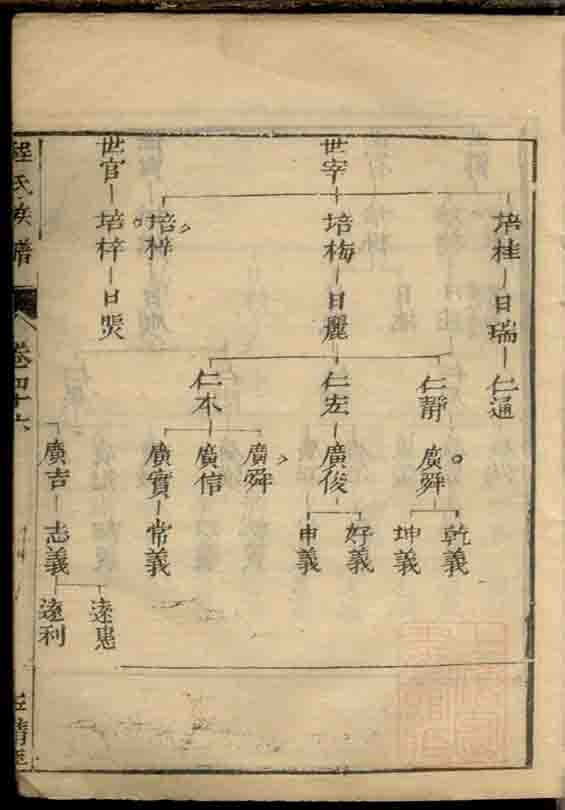 世宰
世官
培桂
培梅
培梓
培梓
日瑞
日麗
日煚
仁通
仁靜
仁宏
仁本
廣舜
廣俊
廣舜
廣信
廣實
廣吉
乾義
坤義
好義
申義
常義
志義
遠惠
遠利
程氏族譜
卷四十六